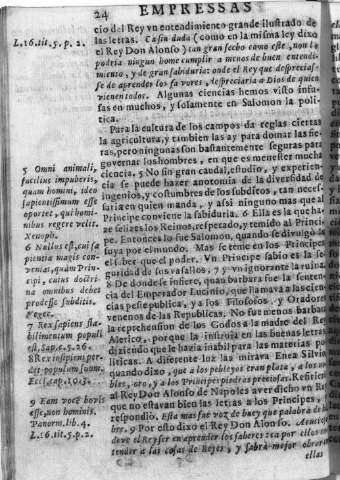 24
EMPRESSAS
cio del Rey vn entendimiento grande ilustrado de
las letras. Ca sin duda (como en la misma ley dixo
el Rey Don Alonso) tan gran fecho como este, non lo
podria ningun home cumplir a menos de buen entendi-
miento, y de gran sabiduria: onde el Rey que despreciasse
de aprender los saberes, despreciaria a Dios de quien
vienen todos. Algunas ciencias hemos visto infu-
sas en muchos, y solamente en Salomon la poli-
tica.
Para la cultura de los campos da reglas ciertas
la agricultura, y tambien las ay para domar las fie-
ras, pero ningunas son bastantemente seguras para
governar los hombres, en que es menester mucha
ciencia. 5 No sin gran caudal, estudio, y experien-
cia se puede hazer anotomia de la diversidad de
ingenios, y costumbres de los subditos, tan neces-
saria en quien manda, y assi ninguno mas que al
Principe conviene la sabiduria. 6 Ella es la que ha-
ze felizes los Reinos, respetado, y temido al Princi-
pe. Entonces lo fue Salomon, quando se divulgò la
suya por el mundo. Mas se teme en los Principes
el saber que el poder. Vn Principe sabio es la se-
guridad de sus vasallos, 7 y vn ignorante la ruina.
8 De donde se infiere, quan barbara fue la senten-
cia del Emperador Lucinio, que llamava a las cien-
cias peste publica, y a los Filosofos, y Oradores
venenos de las Republicas. No fue menos barbara
la reprehension de los Godos a la madre del Rey
Alarico, porque la instruia en las buenas letras,
diziendo que le hazia inabil para las materias po-
liticas. A diferente luz las mirava Enea Silvio
quando dixo, que a los plebeyos eran plata, a los no-
bles, oro, y a los Principes piedras preciosas. Refirieron
al Rey Don Alonso de Napoles aver dicho vn Rey
que no estavan bien las letras a los Principes,
respondiò. Esta mas fue voz de buey que palabra de hom-
bre. 9 Por esto dixo el Rey Don Alonso.
deve el Rey ser en aprender los saberes ca por ellos en-
tender a las cosas de Reyes, y sabrà mejor obrar
ellas
L.16.tit.5.p.2.
5 Omni animali,
facilius imperabis,
quam homini, ideo
sapientissimum esse
oportet, qui homi-
nibus regere velit.
Xenoph.
6 Nullus est, cui sa
pientia magis con-
veniat, quàm Prin-
cipi, cuius doctri-
na omnibus debet
prodesse subditis.
Veget.
7 Rex sapiens sta-
bilimentum populi
est, Sap. 6. 26.
8 Rex insipiens per-
det populum suum.
Eccl. cap. 10. 3.
9 Eam vocē bovis
esse, non hominis.
Panorm. lib. 4.
L.16.tit.5.p.2.